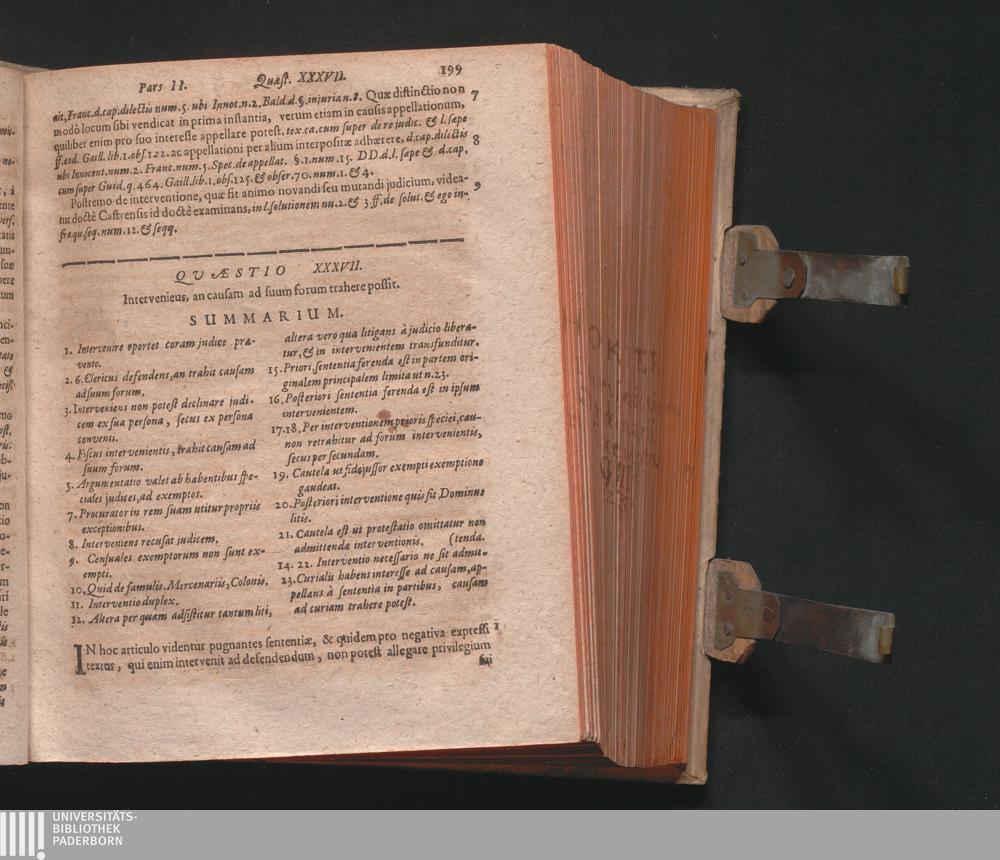 Pars II. Quæst. XXXVII. 199
ait, Franc. d. cap. dilectis num. 5. ubi Innoc. n. 2. Bald. d. §. injuria n. 8. Quæ distinctio non 7
modò locum sibi vendicat in prima instantia, verum etiam in causis appellationum,
quilibet enim pro suo interesse appellare potest. tex. ca. cum super de re judic. & l. sæpe
ff. eod. Gaill. lib. 1. obs. 122. ac appellationi per alium interpositæ adhærere, d. cap. dilectis 8
ubi Innocent. num. 2. Franc. num. 5. Spec. de appellat. §. 1. num. 15. DD. d. l. sæpe & d. cap.
cum super Guid. q. 464. Gaill. lib. 1. obs. 125. & obser. 70. num. 1. & 4.
Postremo de interventione, quæ fit animo novandi seu mutandi judicium, videa- 9
tur doctè Castrensis id doctè examinans, in l. solutionem nu. 2. & 3. ff. de solut. & ego in-
fra qu. seq. num. 12. & seqq.
QVÆSTIO XXXVII.
Interveniens, an causam ad suum forum trahere possit.
SUMMARIUM.
1. Intervenire oportet coram judice præ-
vento.
2. 6. Clericus defendens, an trahit causam
ad suum forum.
3. Interveniens non potest declinare judi-
cem ex sua persona, secus ex persona
conventi.
4. Fiscus intervenientis, trahit causam ad
suum forum.
5. Argumentatio valet ab habentibus spe-
ciales judices, ad exemptos.
7. Procurator in rem suam utitur propriis
exceptionibus.
8. Interveniens recusat judicem.
9. Censuales exemptorum non sunt ex-
empti.
10. Quid de famulis, Mercenariis, Colonis.
11. Interventio duplex.
12. Altera per quam adsistitur tantum liti,
altera vero qua litigans à judicio libera-
tur, & in intervenientem transfunditur.
15. Priori, sententia ferenda est in partem ori-
ginalem principalem limita ut n. 23.
16. Posteriori sententia ferenda est in ipsum
intervenientem.
17. 18. Per interventionem prioris speciei, cau-
non retrahitur ad forum intervenientis,
secus per secundam.
19. Cautela ut fidejussor exempti exemptione
gaudeat.
20. Posteriori interventione quis fit Dominus
litis.
21. Cautela est ut protestatio omittatur non
admittenda interventionis. (tenda.
14. 22. Interventio necessario ne sit admit-
23. Curialis habent interesse ad causam, ap-
pellans à sententia in partibus, causam
ad curiam trahere potest.
IN hoc articulo videntur pugnantes sententiæ, & quidem pro negativa expressi 1
textus, qui enim intervenit ad defendendum, non potest allegare privilegium
sui
UNIVERSITÄTS-
BIBLIOTHEK
PADERBORN